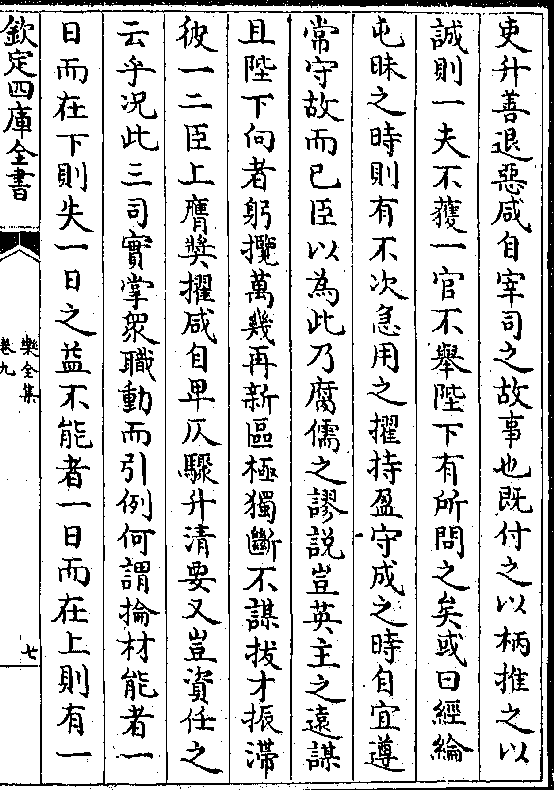 吏升善退惡咸自宰司之故事也既付之以柄推之以
誠則一夫不獲一官不舉陛下有所問之矣或曰經綸
屯昧之時則有不次急用之擢持盈守成之時自宜遵
常守故而已臣以為此乃腐儒之謬說豈英主之遠謀
且陛下向者躬攬萬幾再新區極獨斷不謀拔才振滯
彼一二臣上膺奬擢咸自卑仄驟升清要又豈資任之
云乎况此三司實掌衆職動而引例何謂掄材能者一
日而在下則失一日之益不能者一日而在上則有一
欽定四庫全書
樂全集
卷九
七